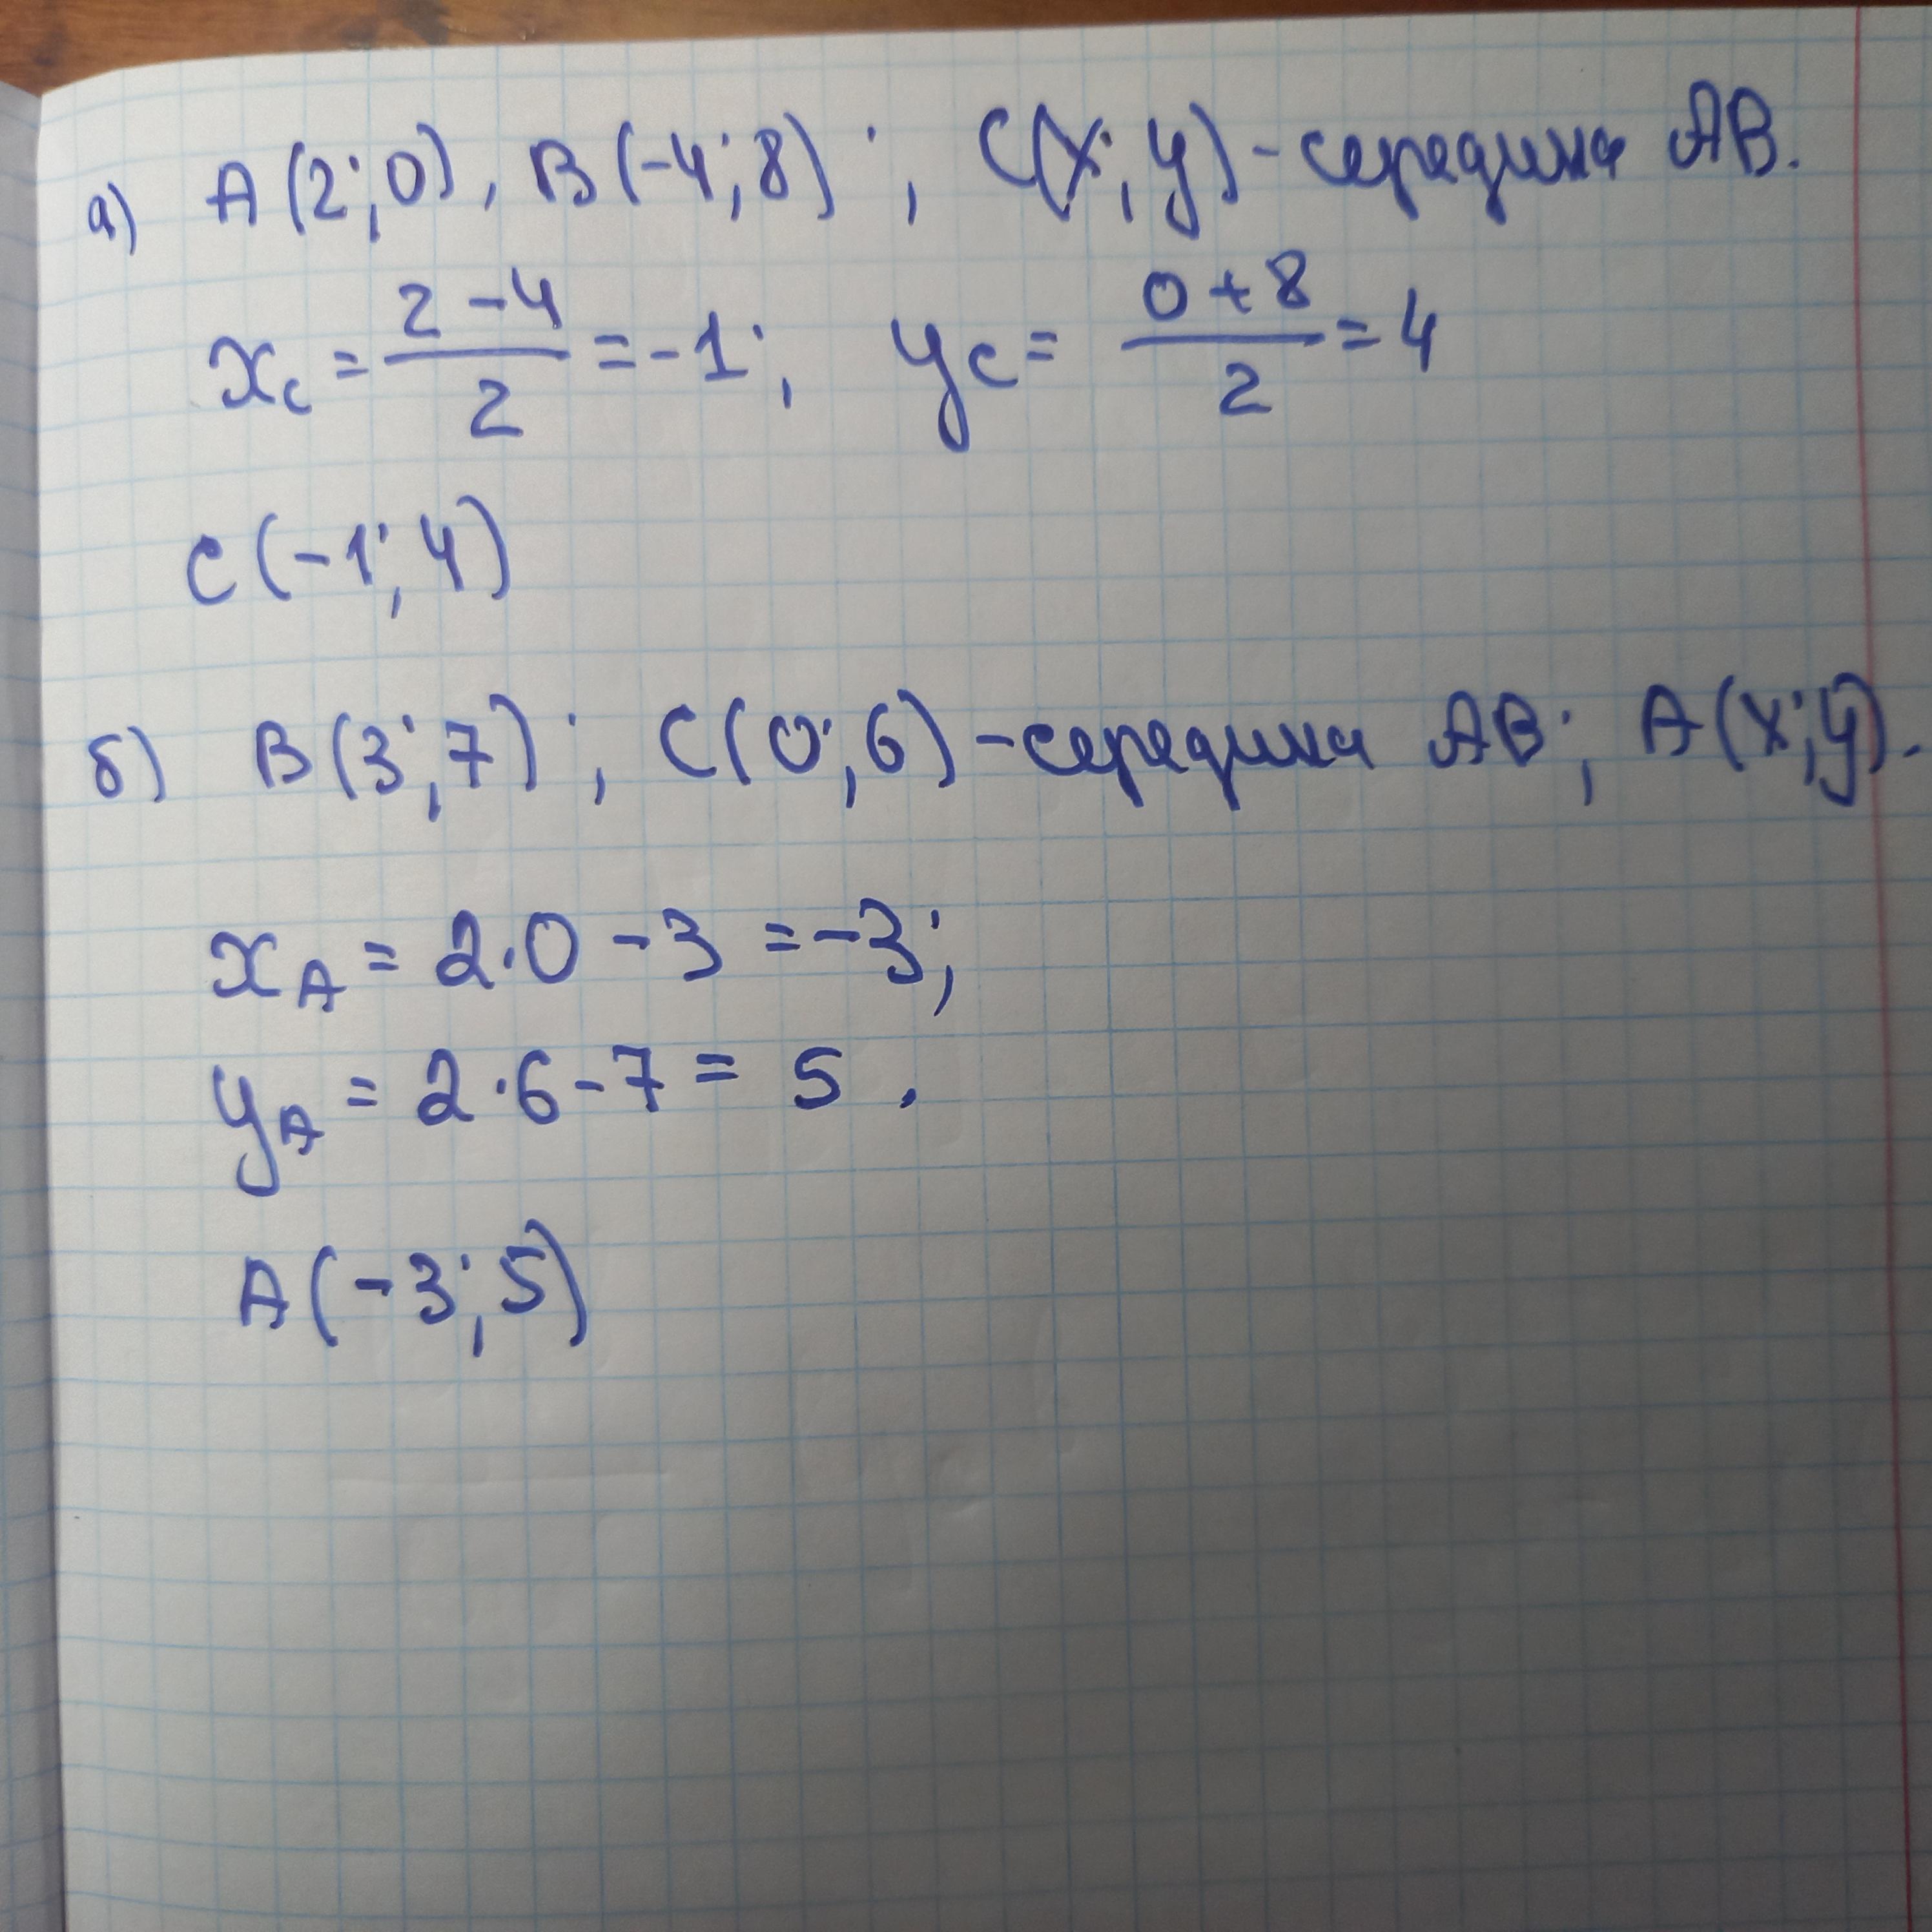 а) A(2;0), B(-4;8); C(x;y)-середина AB.
x_C = (2-4)/2 = -1; y_C = (0+8)/2 = 4
C(-1;4)
б) B(3;7); C(0;6)-середина AB; A(x;y).
x_A = 2·0-3=-3;
y_A = 2·6-7=5.
A(-3;5)